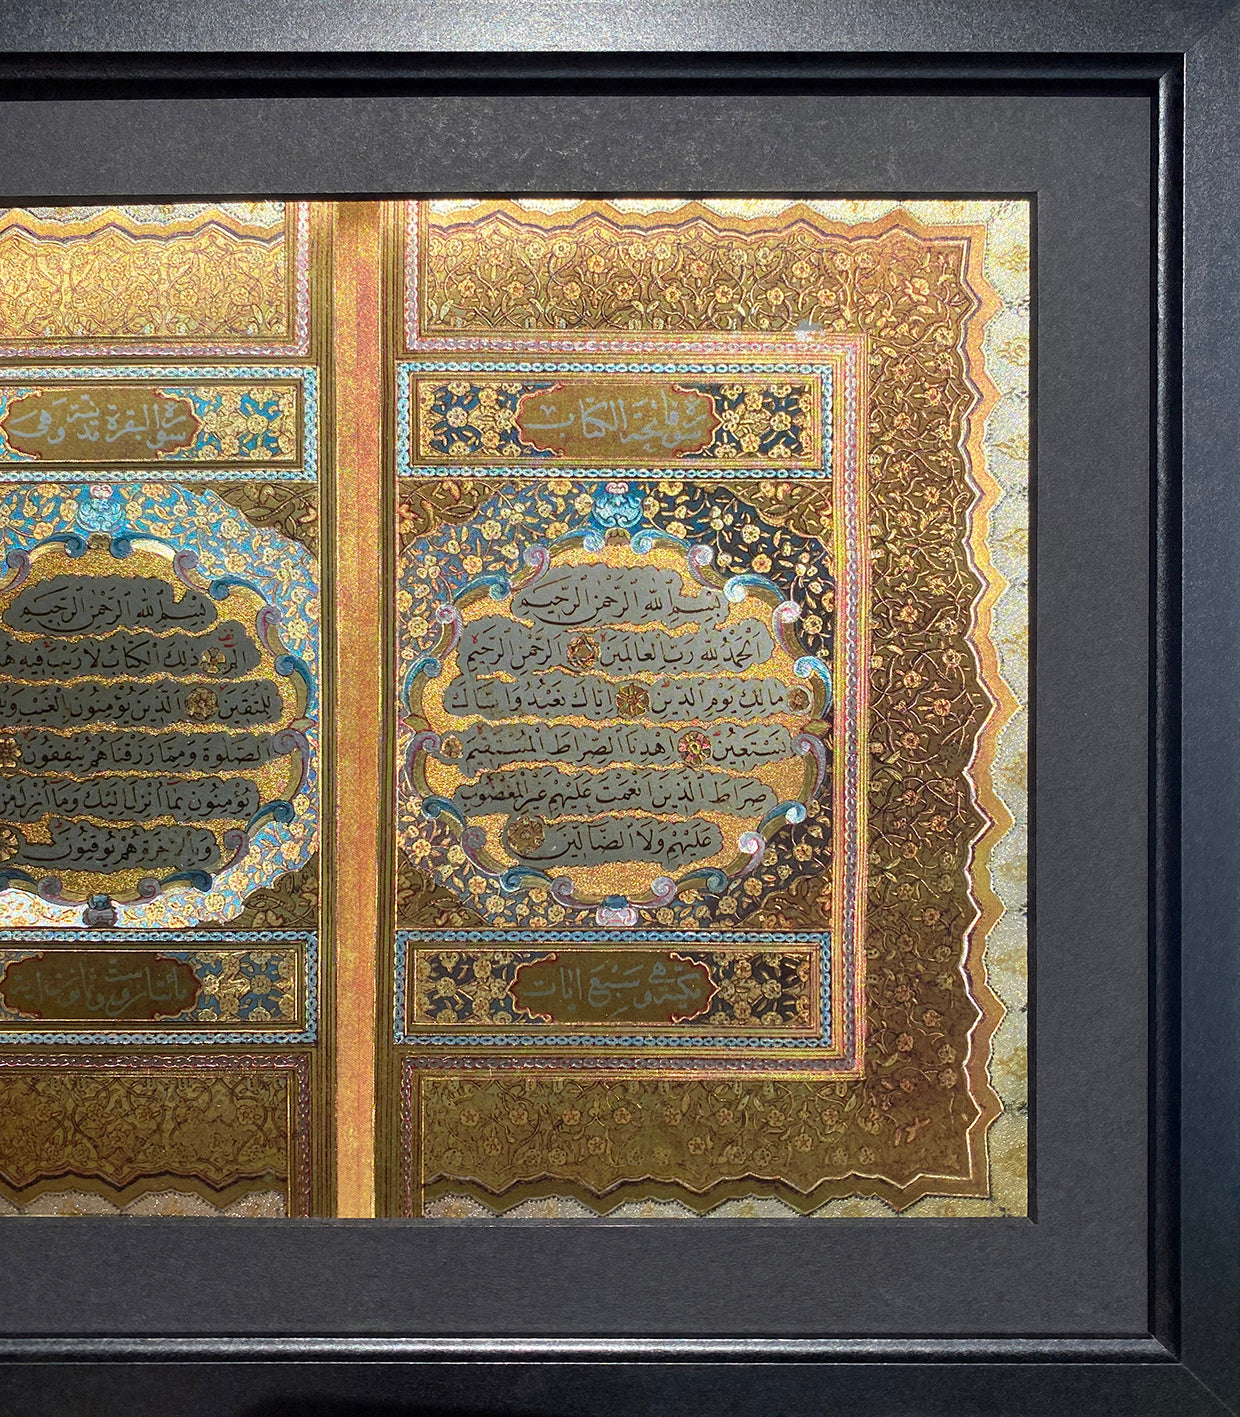 سورة فاتحة الكتاب
بسم الله الرحمن الرحيم
الحمد لله رب العالمين الرحمن الرحيم
مالك يوم الدين اياك نعبد واياك
نستعين اهدنا الصراط المستقيم
صراط الذين انعمت عليهم غير المغضوب
عليهم ولا الضالين
مكية وهي سبع ايات
سورة البقرة مدنية وهي
بسم الله الرحمن الرحيم
الم ذلك الكتاب لا ريب فيه
للمتقين الذين يؤمنون بالغيب
الصلوة ومما رزقناهم ينفقون
يؤمنون بما انزل اليك وما انزل من
وبالاخرة هم يوقنون
مائتان وثمانون اية